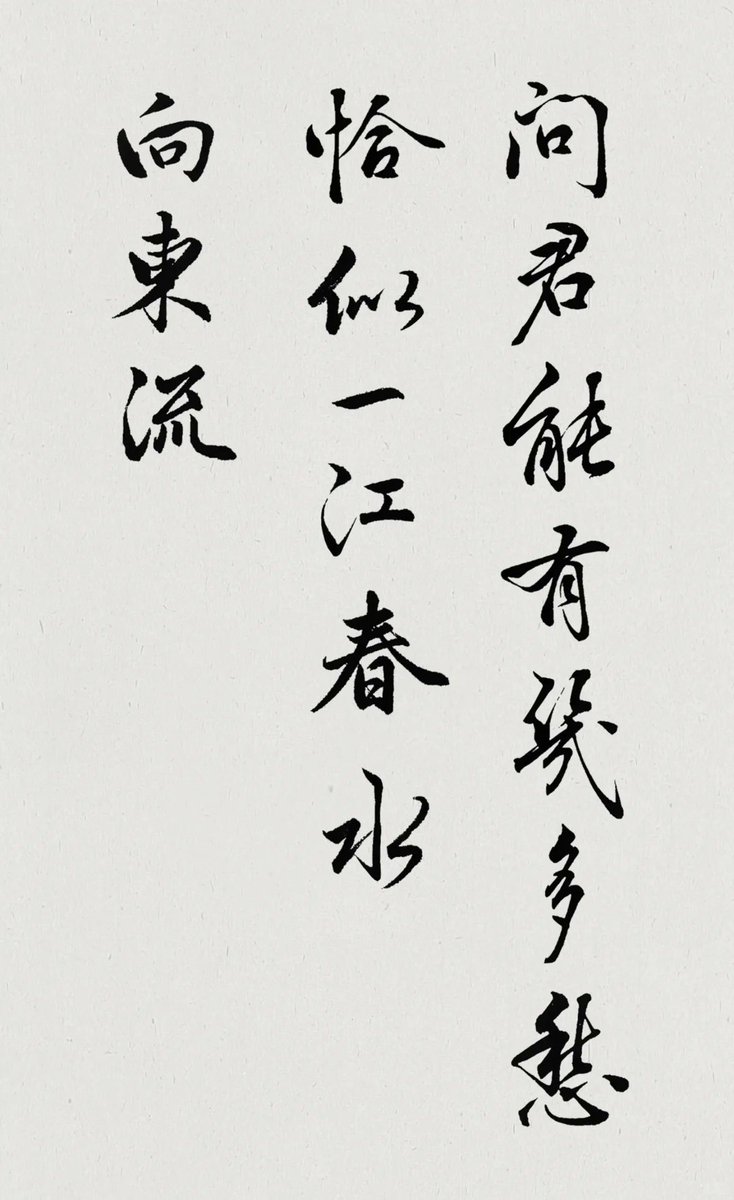 問君能有幾多愁
恰似一江春水
向東流